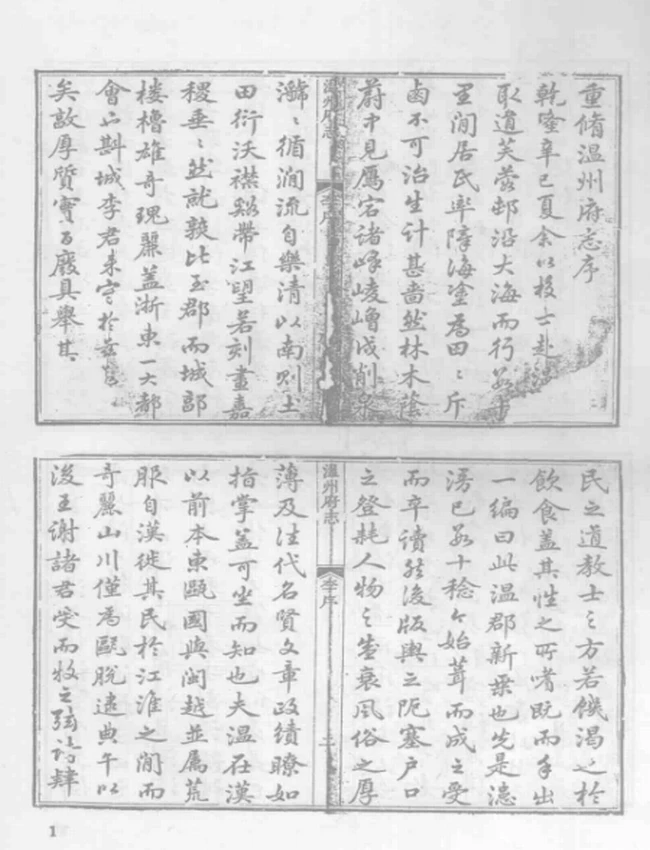 重脩温州府志序
乾隆辛巳夏余以校士赴
取道芙蓉邨沿大海而行數十
里閒居民率障海塗為田々斥
鹵不可治生计甚嗇然林木蔭
蔚中見鴈宕諸峰崚嶒戍削泉
温州府志
李序
々循澗流自樂清以南则土
田衍沃襟谿帶江朢若刻畫嘉
稷垂々然就穫比至郡而城郭
楼櫓雄奇瑰麗盖浙東一大都
會也斟城李君来守於兹
矣敦厚質實百廢具舉其
民之道教士之方若饑渴之於
飲食盖其性之所嗜既而手出
一編曰此温郡新乗也先是漶
漫已數十稔今始葺而成之受
而卒讀然後版輿之阨塞户口
之登耗人物之盛衰風俗之厚
温州府志
李序
二
薄及往代名賢文章政績瞭如
指掌盖可坐而知也夫温在漢
以前本東甌國與閩越並属荒
服自漢徙其民於江淮之閒而
奇麗山川僅為甌脱逮典午以
後王謝諸君受而牧之弦诗肆
1